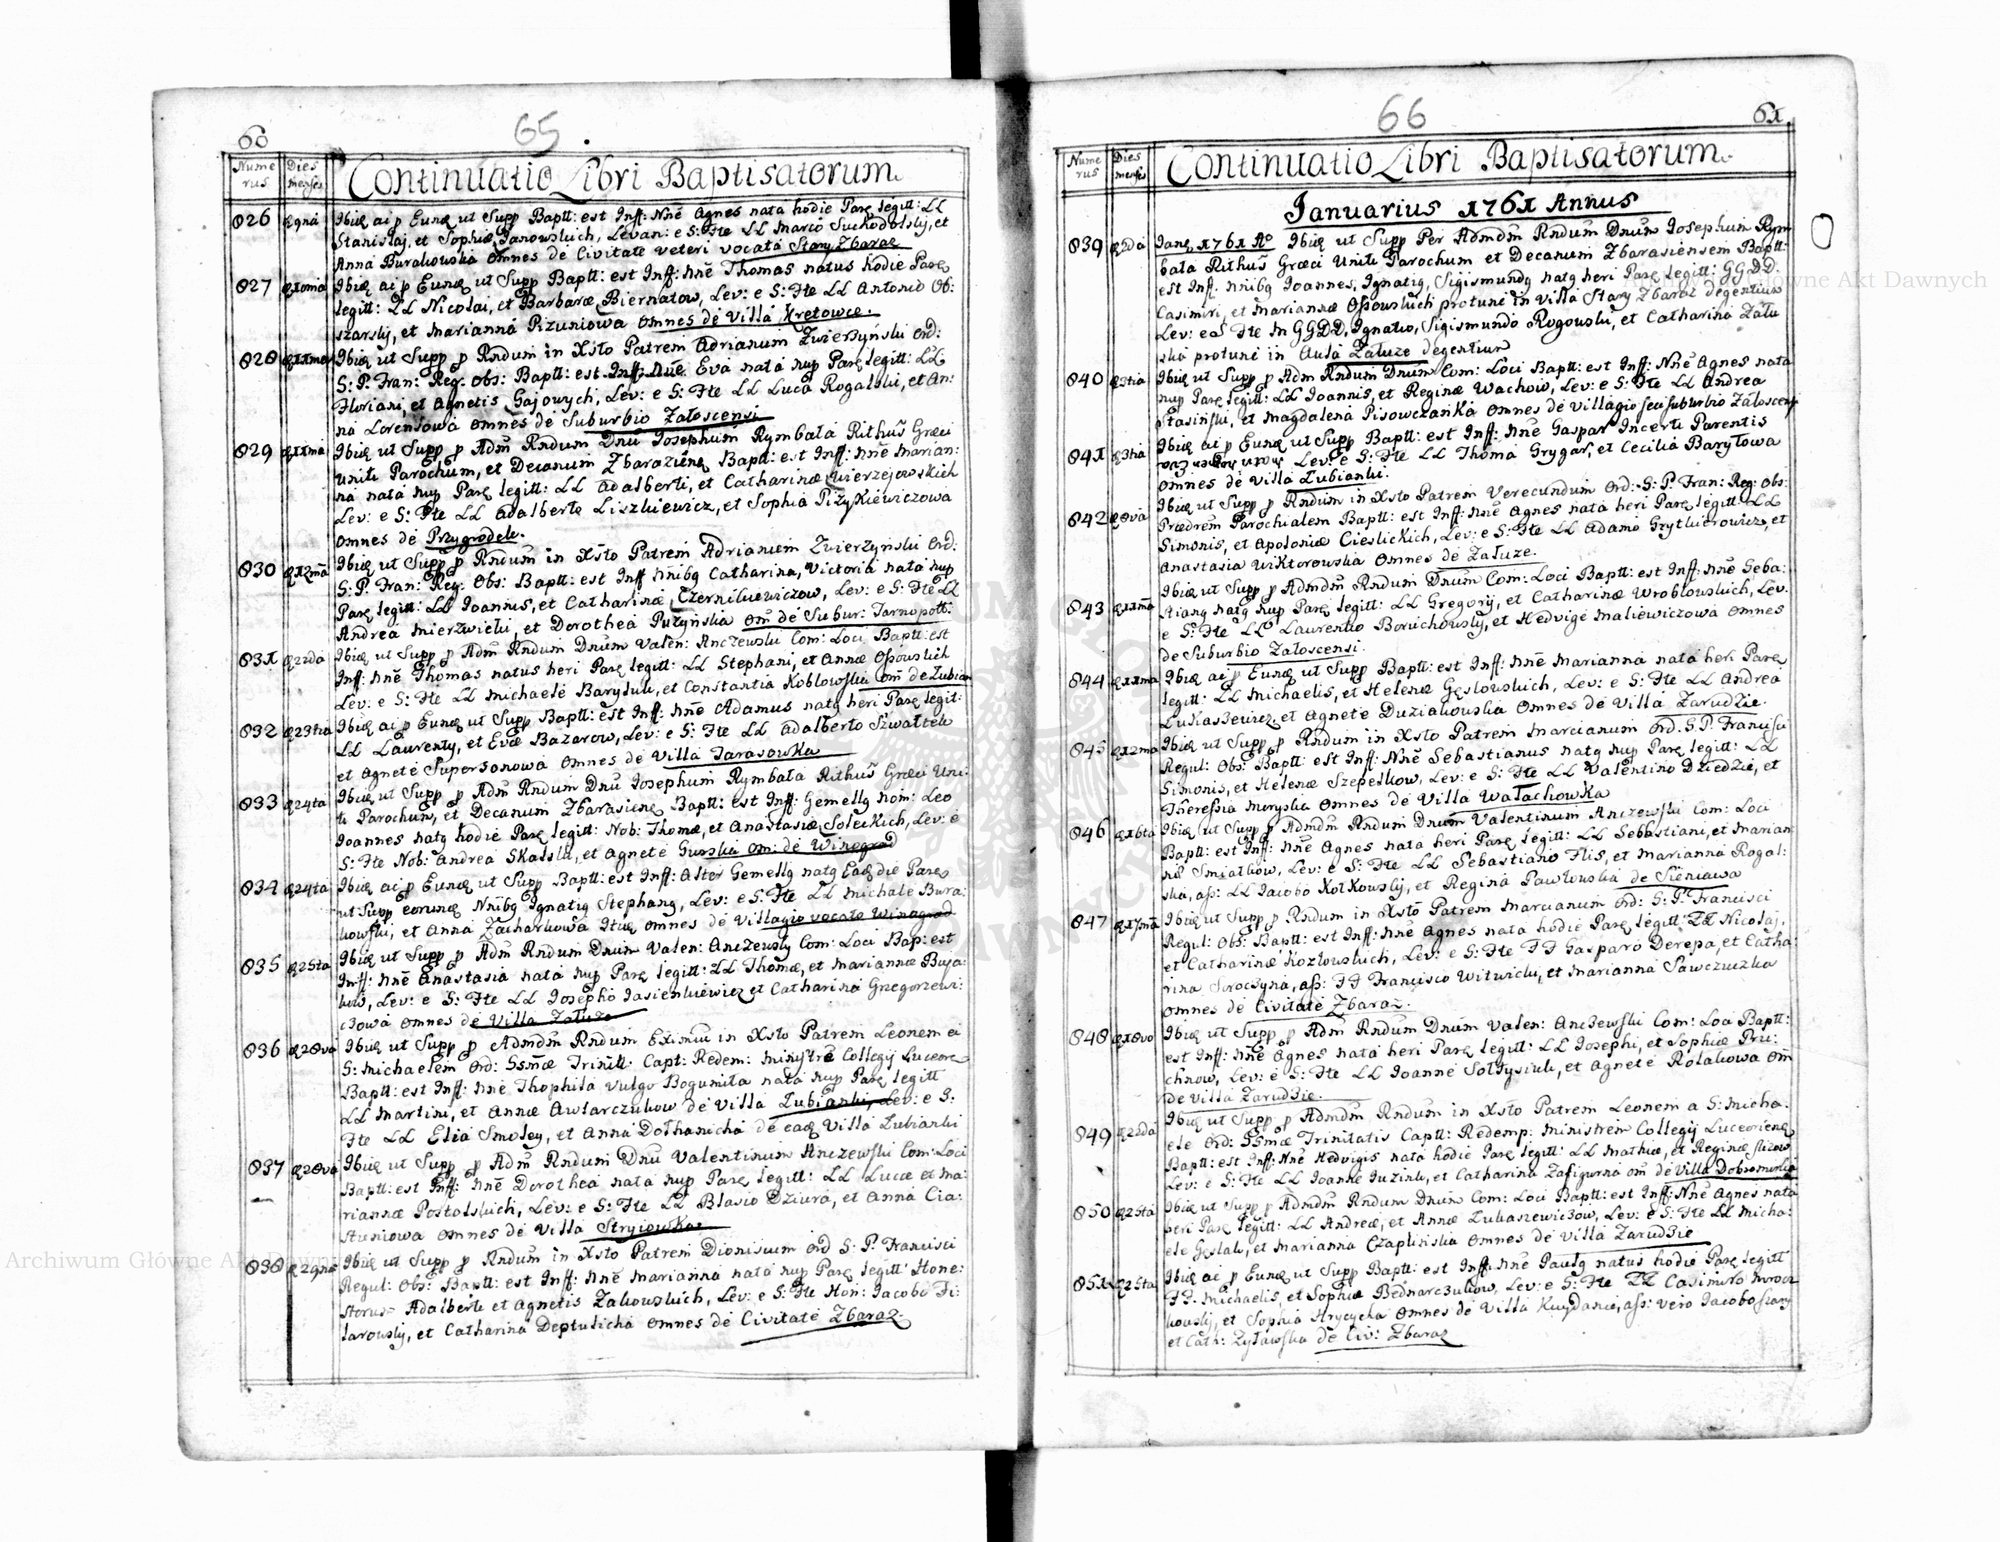 60
65
Nume
rus
Dies
mensis
Continuatio Libri Baptisatorum.
826 9na Ibidē ai p Eundē ut Supp Baptt: est Inff: Nnē Agnes nata hodie Parē legitt: LL
Stanislai, et Sophiæ Janowskich, Levan: e S: Fte LL Marco Suchodolskij, et
Anna Burakowska omnes de Civitate veteri vocata Stary Zbaraz
827 10ma Ibidē ai p Eundē ut Supp Baptt: est Inff: Nnē Thomas natus hodie Parē
legitt: LL Nicolai, et Barbaræ Biernatow, Lev: e S: Fte LL Antonio Ob:
szarskj, et Marianna Pizuniowa omnes de Villa Kretowce.
828 11ma Ibidē ut Supp p Rndum in Xsto Patrem Adrianum Zwierzynski Ord:
S: P: Fran: Reg: Obs: Baptt: est Inff: Nnē Eva nata nup Parē legitt: LL
Floriani, et Agnetis Gajowych, Lev: e S: Fte LL Luca Rogalski, et An:
na Lorensowa omnes de Suburbio Załoscensi
829 11ma Ibidē ut Supp p Adm Rndum Dnū Josephum Rymbala Rithus Græci
Uniti Parochum, et Decanum Zbaraziēnē Baptt: est Inff: Nnē Marian:
na nata nup Parē legitt: LL Adalberti, et Catharinæ Zwierzejowskich
Lev: e S: Fte LL Adalberto Liszkiewicz, et Sophia Pizykiewiczowa
omnes de Przygrodek.
830 12ma Ibidē ut Supp p Rndum in Xsto Patrem Adrianem Zwierzynski Ord:
S: P: Fran: Reg: Obs: Baptt: est Inff Nnibg Catharina, Victoria nata nup
Parē legitt: LL Joannis, et Catharinæ Czernikiewiczow, Lev: e S: Fte LL
Andrea Mierzwicki, et Dorothea Puzynska om de Subur: Tarnopoli:
831 22da Ibidē ut Supp p Adm Rndum Dnum Valen: Anczewski Com: Loci Baptt: est
Inff: Nnē Thomas natus heri Parē legitt: LL Stephani, et Annæ Ossowskich
Lev: e S: Fte LL Michaele Barysiuk, et Constantia Koblowska om de Lubian
832 23tia Ibidē ai p Eundē ut Supp Baptt: est Inff: Nnē Adamus natg heri Parē legit:
LL Laurenty, et Evæ Bazarow, Lev: e S: Fte LL Adalberto Szwaltek
et Agnete Supersonowa omnes de Villa Tarasowka
833 24ta Ibidē ut Supp p Adm Rndum Dnū Josephum Rymbala Rithus Græci Uni:
ti Parochum, et Decanum Zbarasienē Baptt: est Inff: Gemellg Nom: Leo
Joannes natg hodie Parē legitt: Nob: Thomæ, et Anastasiæ Soleckich, Lev: e
S: Fte Nob: Andrea Skalski, et Agnete Gurska om: de Winograd
834 24ta Ibidē ai p Eundē ut Supp Baptt: est Inff: Alter Gemellg natg Eadē die Parē
ut Supp eorundē Nnibg Ignatig Stephang, Lev: e S: Fte LL Michale Bura:
kowski, et Anna Zacharkowa Itidē omnes de Villagio vocato Winograd
835 25ta Ibidē ut Supp p Adm Rndum Dnum Valen: Anczewskj Com: Loci Bap: est
Inff: Nnē Anastasia nata nup Parē legitt: LL Thomæ, et Mariannæ Buja:
kow, Lev: e S: Fte LL Josepho Jasienkiewicz et Catharina Grzegorzewi:
czowa omnes de Villa Załuze
836 28va Ibidē ut Supp p Admdm Rndum Eximiū in Xsto Patrem Leonem a
S: Michaelem Ord: Ssmæ Trinitt: Capt: Redem: Ministrē Collegij Luceore
Baptt: est Inff: Nnē Thophila vulgo Bogumila nata nup Parē legitt
LL Martini, et Annæ Awlarczukow de Villa Lubianki, Lev: e S:
Fte LL Elia Smoley, et Anna Dołhanicha de eadē Villa Lubianki
837 28va Ibidē ut Supp p Adm Rndum Dnū Valentinum Anczewski Com: Loci
Baptt: est Inff: Nnē Dorothea nata nup Parē legitt: LL Lucæ et Ma:
riannæ Postolskich, Lev: e S: Fte LL Blasio Dziura, et Anna Cia:
stuniowa omnes de Villa Stryiowka
838 29na Ibidē ut Supp p Rndum in Xsto Patrem Dionisium Ord S: P: Francisci
Regul: Obs: Baptt: est Inff: Nnē Marianna nata nup Parē legitt: Hone:
storum Adalberti et Agnetis Zakowskich, Lev: e S: Fte Hon: Jacobo Fi:
larowskj, et Catharina Deptulicha omnes de Civitate Zbaraz.
66
61
Nume
rus
Dies
mensis
Continuatio Libri Baptisatorum.
Januarius 1761 Annus
839 2da Janē 1761 Ao Ibidē ut Supp Per Admdm Rndum Dnum Josephum Rym
bala Rithus Græci Uniti Parochum et Decanum Zbarasiensem Baptt:
est Inff: Nnibg Joannes, Ignatig, Sigismundg natg heri Parē legitt: GGDD.
Casimiri, et Mariannæ Ossowskich protunc in Villa Stary Zbaraz degentium
Lev: e S Fte M GGDD. Ignatio, Sigismundo Rogowski, et Catharina Zału
ska protunc in Aula Załuze degentium
840 3tia Ibidē ut Supp p Adm Rndum Dnum Com: Loci Baptt: est Inff: Nnē Agnes nata
nup Parē legitt: LL Joannis, et Reginæ Wachow, Lev: e S: Fte LL Andrea
Stasinski, et Magdalena Pisowczanka omnes de Villagio seu Suburbio Załoscensi
841 3tia Ibidē ai p Eundē ut Supp Baptt: est Inff: Nnē Gaspar Incerti Parentis
Lev: e S: Fte LL Thoma Grygar, et Cecilia Barylowa
omnes de Villa Lubianki.
842 8va Ibidē ut Supp p Rndum in Xsto Patrem Verecundum Ord: S: P: Fran: Reg: Obs:
Prædrem Parochialem Baptt: est Inff: Nnē Agnes nata heri Parē legitt: LL
Simonis, et Apoloniæ Cieslickich, Lev: e S: Fte LL Adamo Grytkierowicz, et
Anastasia Wiktorowska omnes de Załuze.
843 11ma Ibidē ut Supp p Admdm Rndum Dnum Com: Loci Baptt: est Inff: Nnē Seba:
stiang natg nup Parē legitt: LL Gregorij, et Catharinæ Wroblowskich, Lev:
e S: Fte LL Laurentio Boruchowskj, et Hedvige Maliewiczowa omnes
de Suburbio Załoscensi.
844 11ma Ibidē ai p Eundē ut Supp Baptt: est Inff: Nnē Marianna nata heri Parē
legitt: LL Michaelis, et Helenæ Gęslowskich, Lev: e S: Fte LL Andrea
Lukaszewicz, et Agnete Duziakowska omnes de Villa Zarudzie.
845 12ma Ibidē ut Supp p Rndum in Xsto Patrem Marcianum Ord. S. P. Francisci
Regul: Obs: Baptt: est Inff: Nnē Sebastianus natg nup Parē legitt: LL
Simonis, et Helenæ Szepetkow, Lev: e S: Fte LL Valentino Dziedzic, et
Theressia Muryska omnes de Villa Walachowka
846 16ta Ibidē ut Supp p Admdm Rndum Dnum Valentinum Anczewski Com: Loci
Baptt: est Inff: Nnē Agnes nata heri Parē legitt: LL Sebastiani, et Marian
næ Smiałkow, Lev: e S: Fte LL Sebastiano Flis, et Marianna Rogal:
ska, ass: LL Jacobo Kotkowskj, et Regina Pawłowska de Sieniawa
847 17ma Ibidē ut Supp p Rndum in Xsto Patrem Marcianum Ord: S: P: Francisci
Regul: Obs: Baptt: est Inff: Nnē Agnes nata hodie Parē legitt: FF Nicolaj,
et Catharinæ Kozlowskich, Lev: e S: Fte FF Gasparo Derepa, et Catha:
rina Sroczyna, ass: FF Francisco Witwicki, et Marianna Sawczuczka
omnes de Civitate Zbaraz.
848 18vo Ibidē ut Supp p Adm Rndum Dnum Valen: Anczewski Com: Loci Baptt:
est Inff: Nnē Agnes nata heri Parē legitt: LL Josephi, et Sophiæ Pru:
chnow, Lev: e S: Fte LL Joanne Soltysiuk, et Agnete Rolakowa om
de Villa Zarudzie.
849 22da Ibidē ut Supp p Admdm Rndum in Xsto Patrem Leonem a S: Micha:
ele Ord: Ssmæ Trinitatis Captt: Redemp: Ministrem Collegij Luceorienē
Baptt: est Inff: Nnē Hedvigis nata hodie Parē legitt: LL Mathiæ, et Reginæ
Lev: e S: Fte LL Joanne Juzink, et Catharina Zafigurna om de Villa Dobromirka
850 25ta Ibidē ut Supp p Admdm Rndum Dnum Com: Loci Baptt: est Inff: Nnē Agnes nata
heri Parē legitt: LL Andreæ, et Annæ Lukaszewiczow, Lev: e S: Fte LL Micha:
ele Gęslak, et Marianna Czaplinska omnes de Villa Zarudzie
851 25ta Ibidē ai p Eundē ut Supp Baptt: est Inff: Nnē Paulg natus hodie Parē legitt
FF. Michaelis, et Sophiæ Bednarczukow, Lev: e S: Fte FF Casimiro Mrocz
kowskj, et Sophia Hrycycka omnes de Villa Kuydanie, ass: vero Jacobo Szary
et Cath: Zyławska de Civ: Zbaraz
Archiwum Główne Akt Dawnych
Archiwum Główne Akt Dawnych